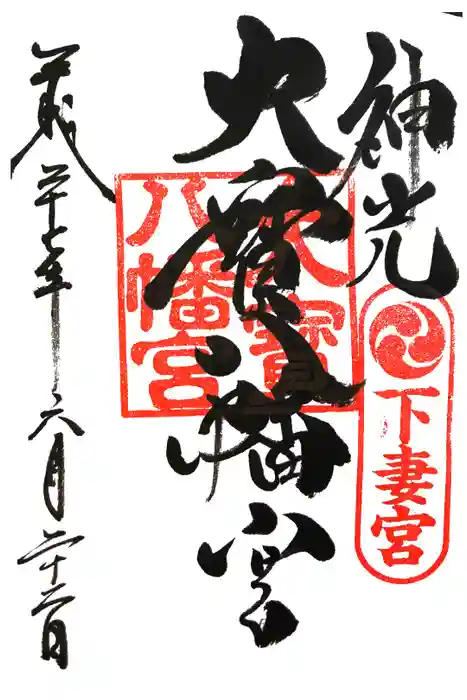 神光
下妻宮
大寶八幡宮
大寶
八幡宮
平成二十七年六月二十二日